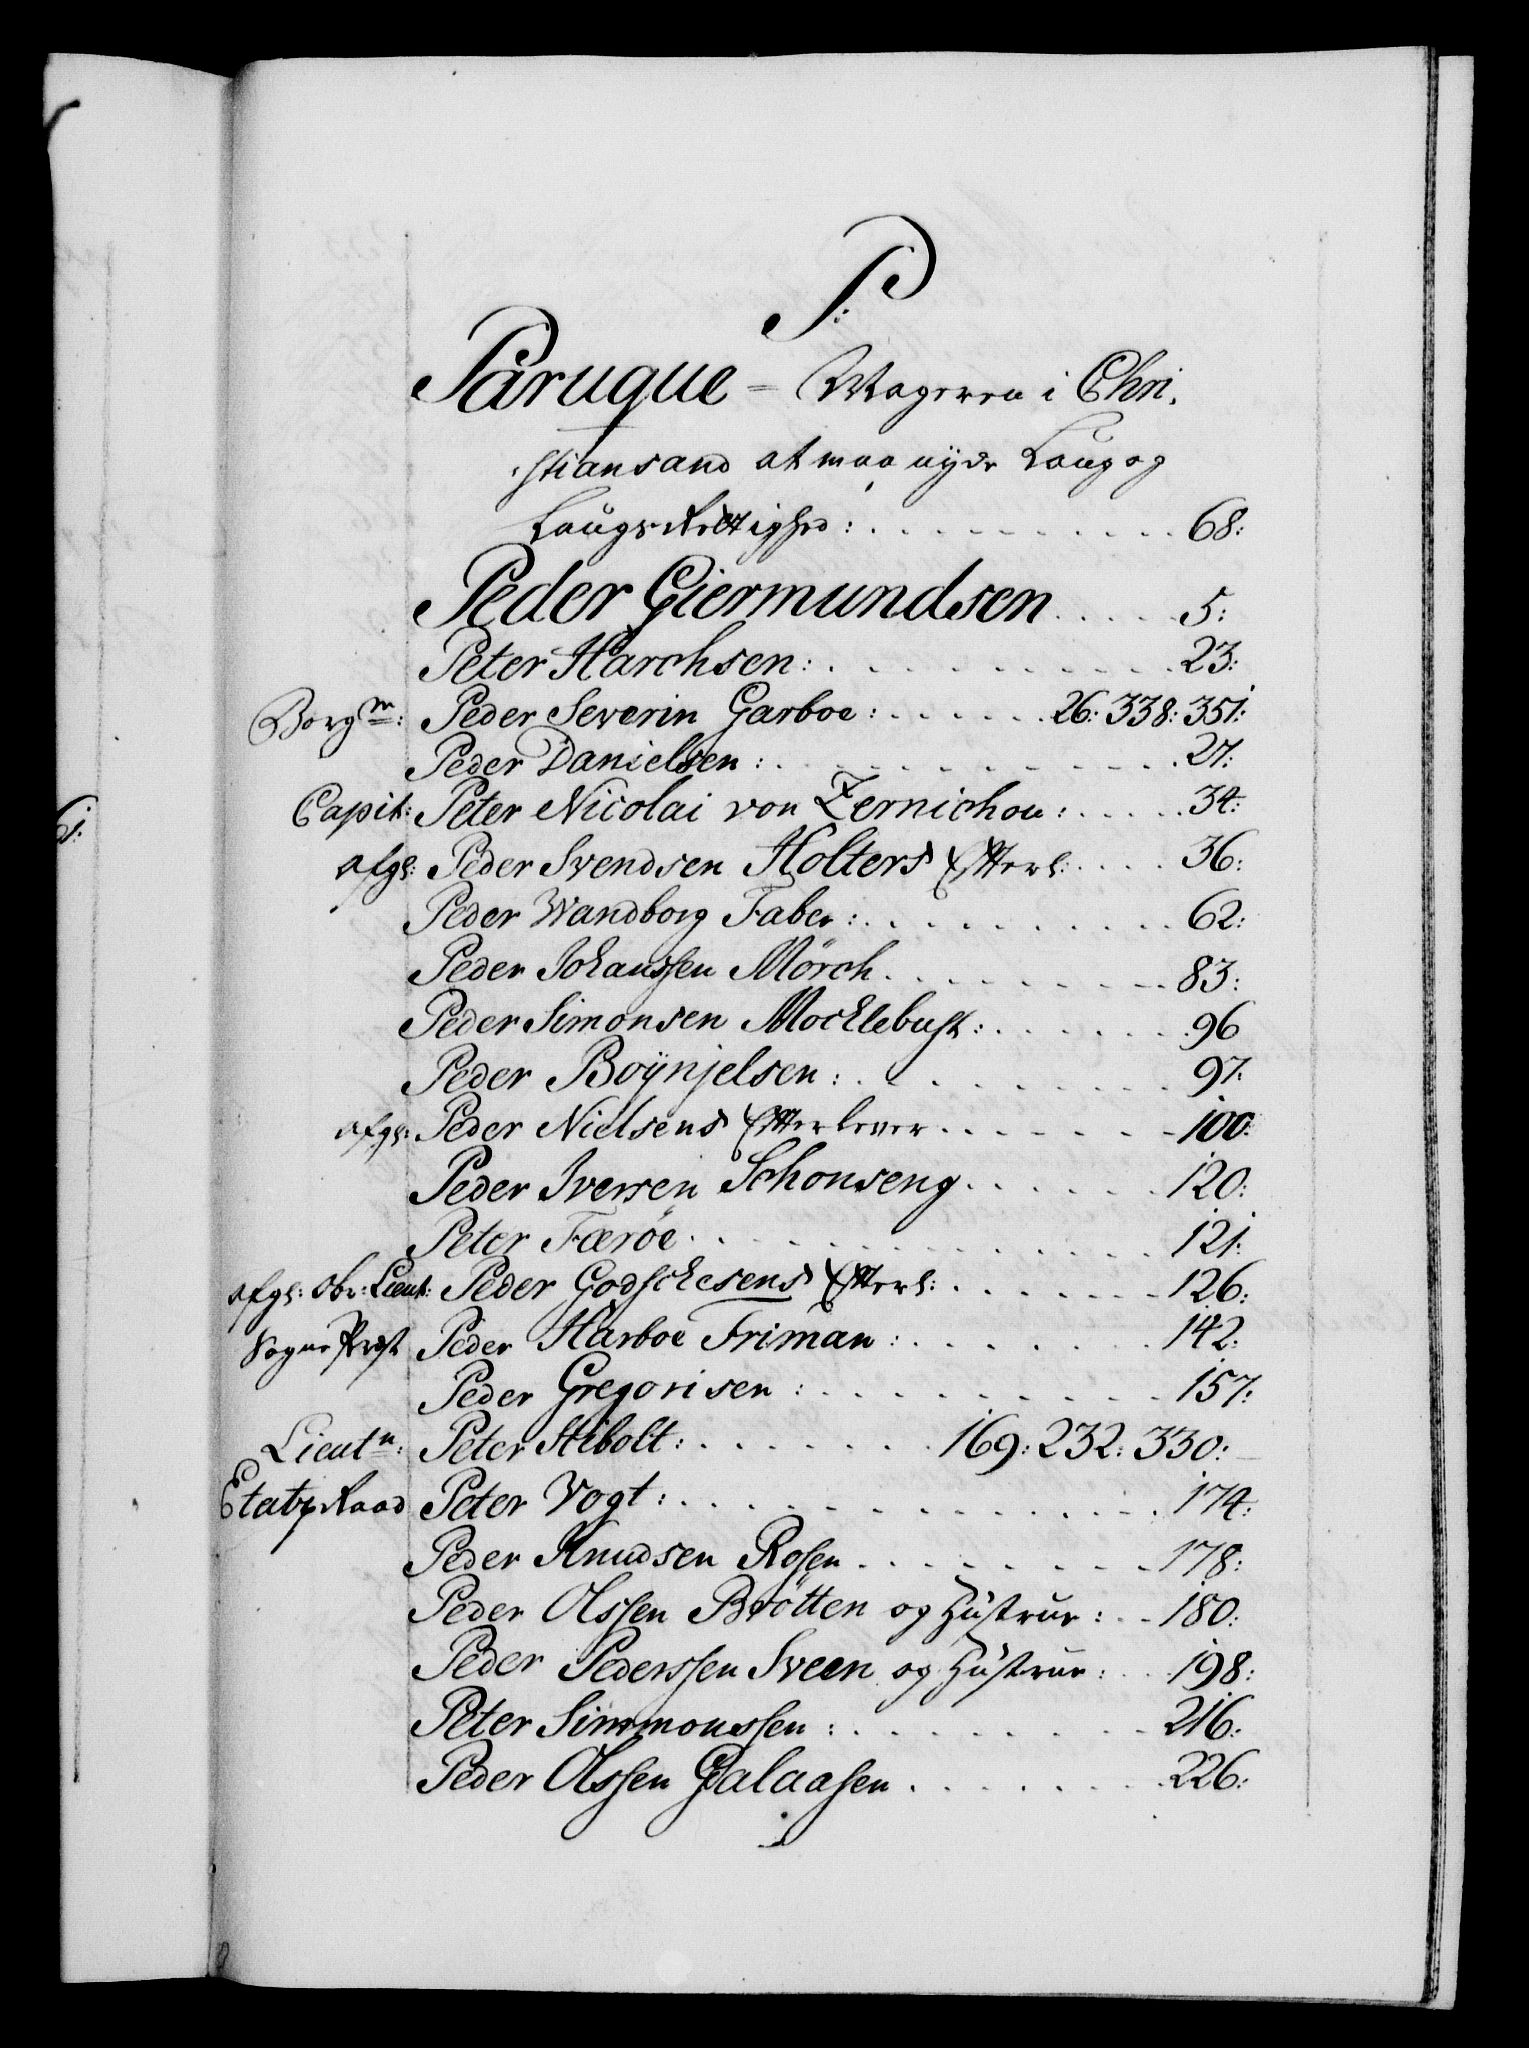 P:
Paruque = Magerea i Chri,
stiansand at maa nyde Laug og
Laugs Rettighed: 68:
Peder Giermundsen 5:
Peter Harchsen: 23:
Borgm: Peder Severin Garboe: 26: 338: 351:
Peder Danielsen: 27:
Capit: Peter Nicolai von Zernichou: 34:
afgl: Peder Svendsen Holters Efterl: 36:
Peder Wandborg Faber: 62:
Peder Johanssen Mörch 83:
Peder Simonsen Mocklebust: 96
Peder Boÿnjelsen: 97:
afgl: Peder Nielsens Efterlever 100:
Peder Iverssen Schonseng 120:
Peter Færöe 121:
afgl: Obr: Lieut: Peder Godschesens Efterl: 126:
Sogne Præst Peder Harboe Friman: 142:
Peder Gregorisen: 157:
Lieutn: Peter Stibolt: 169: 232: 330:
Etats Raad Peter Vogt: 174:
Peder Knudsen Rosen 178:
Peder Olssen Brötten og Hustrue: 180:
Peder Pederssen Sveen og Hustrue: 198:
Peter Simmonssen: 216:
Peder Olssen Galaasen 226: